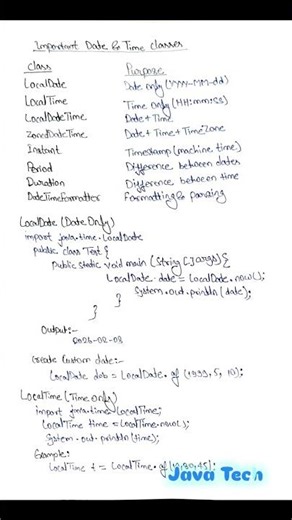 Important Date & Time classes
Class Purpose
LocalDate Date only (YYYY-MM-dd)
LocalTime Time only (HH:mm:ss)
LocalDateTime Date + Time
ZonedDateTime Date + Time + TimeZone
Instant Timestamp (machine time)
Period Difference between dates
Duration Difference between time
DateTimeFormatter Formatting & parsing
LocalDate (Date Only)
import java.time.LocalDate
public class Test {
public static void main (String [] args) {
LocalDate date = LocalDate.now();
System.out.println (date);
}
}
Output:-
2026-02-03
Create Custom date:-
LocalDate dob = LocalDate.of (1999, 5, 10);
LocalTime (Time Only)
import java.time.LocalTime;
LocalTime time = LocalTime.now();
System.out.println (time);
Example:
LocalTime t = LocalTime.of (10,30,45);
Java Tech